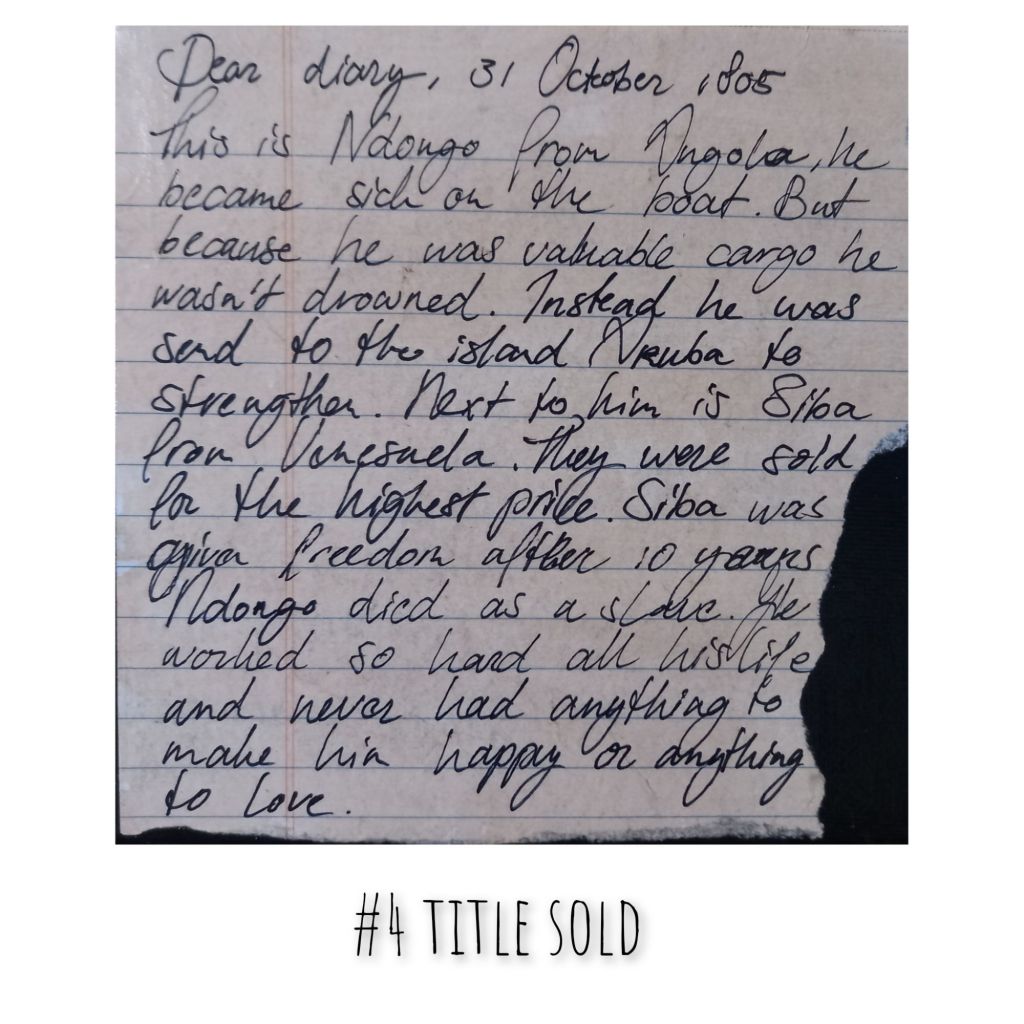 Dear diary, 31 October 1805
This is Ndongo from Angola, he
became sick on the boat. But
because he was valuable cargo he
wasn't drowned. Instead he was
send to the island Aruba to
strengthen. Next to him is Siba
from Venesuela. They were sold
for the highest price. Siba was
given freedom after 10 years
Ndongo died as a slave. He
worked so hard all his life
and never had anything to
make him happy or anything
to love.
#4 TITLE SOLD